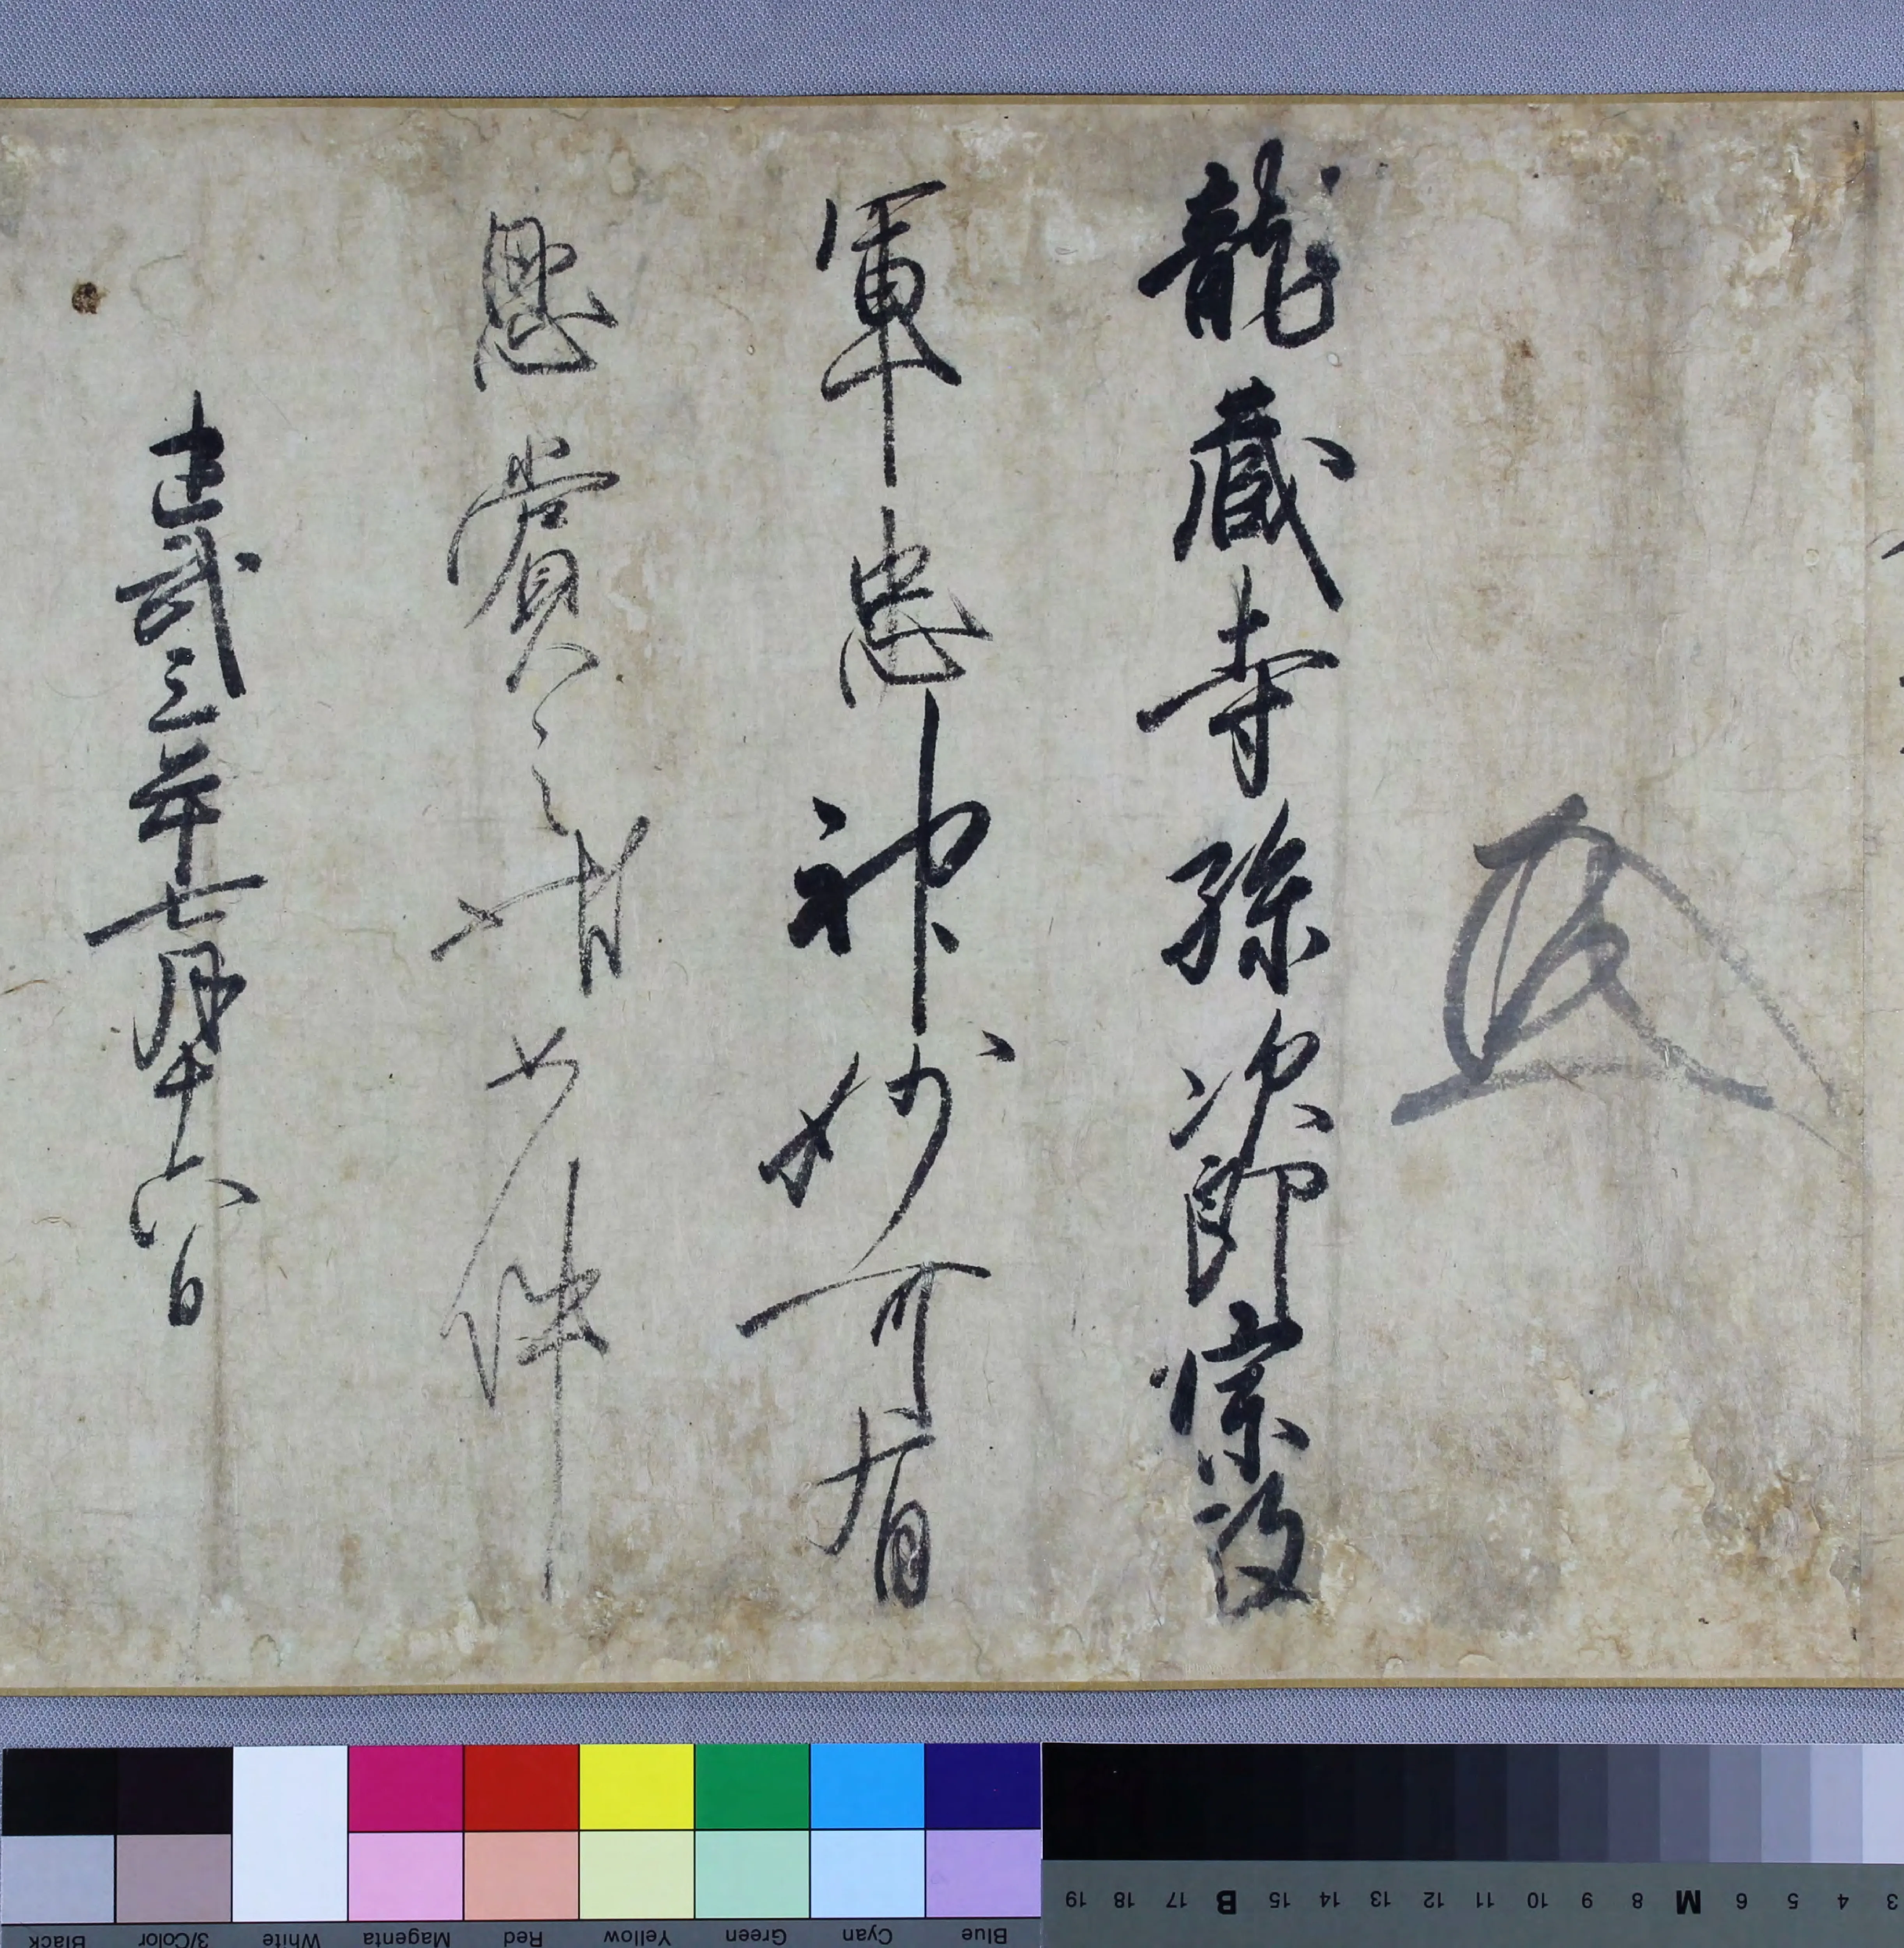 龍蔵寺孫次郎
軍忠神妙可有
恩賞之状如件
建武三年七月十六日
3 4 5 6 M 8 9 10 11 12 13 14 15 B 17 18 19
Blue Cyan Green Yellow Red Magenta White 3/Color Black